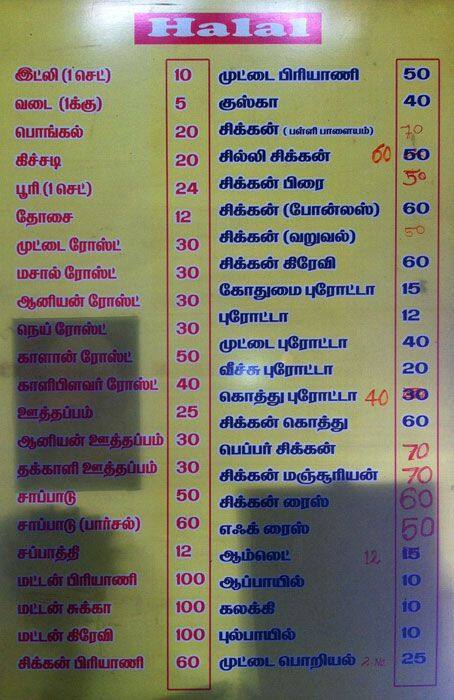 Halal
இட்லி (1 செட்) 10
வடை (1க்கு) 5
பொங்கல் 20
கிச்சடி 20
பூரி (1 செட்) 24
தோசை 12
முட்டை ரோஸ்ட் 30
மசால் ரோஸ்ட் 30
ஆனியன் ரோஸ்ட் 30
நெய் ரோஸ்ட் 30
காளான் ரோஸ்ட் 50
காளிபிளவர் ரோஸ்ட் 40
ஊத்தப்பம் 25
ஆனியன் ஊத்தப்பம் 30
தக்காளி ஊத்தப்பம் 30
சாப்பாடு 50
சாப்பாடு (பார்சல்) 60
சப்பாத்தி 12
மட்டன் பிரியாணி 100
மட்டன் சுக்கா 100
மட்டன் கிரேவி 100
சிக்கன் பிரியாணி 60
முட்டை பிரியாணி 50
குஸ்கா 40
சிக்கன் (பள்ளி பாளையம்) 70
சில்லி சிக்கன் 60 50
சிக்கன் பிரை 50
சிக்கன் (போன்லஸ்) 60
சிக்கன் (வறுவல்) 50
சிக்கன் கிரேவி 60
கோதுமை புரோட்டா 15
புரோட்டா 12
முட்டை புரோட்டா 40
வீச்சு புரோட்டா 20
கொத்து புரோட்டா 40 30
சிக்கன் கொத்து 60
பெப்பர் சிக்கன் 70
சிக்கன் மஞ்சூரியன் 70
சிக்கன் ரைஸ் 60
எஃக் ரைஸ் 50
ஆம்லெட் 12 15
ஆப்பாயில் 10
கலக்கி 10
புல்பாயில் 10
முட்டை பொறியல் 25